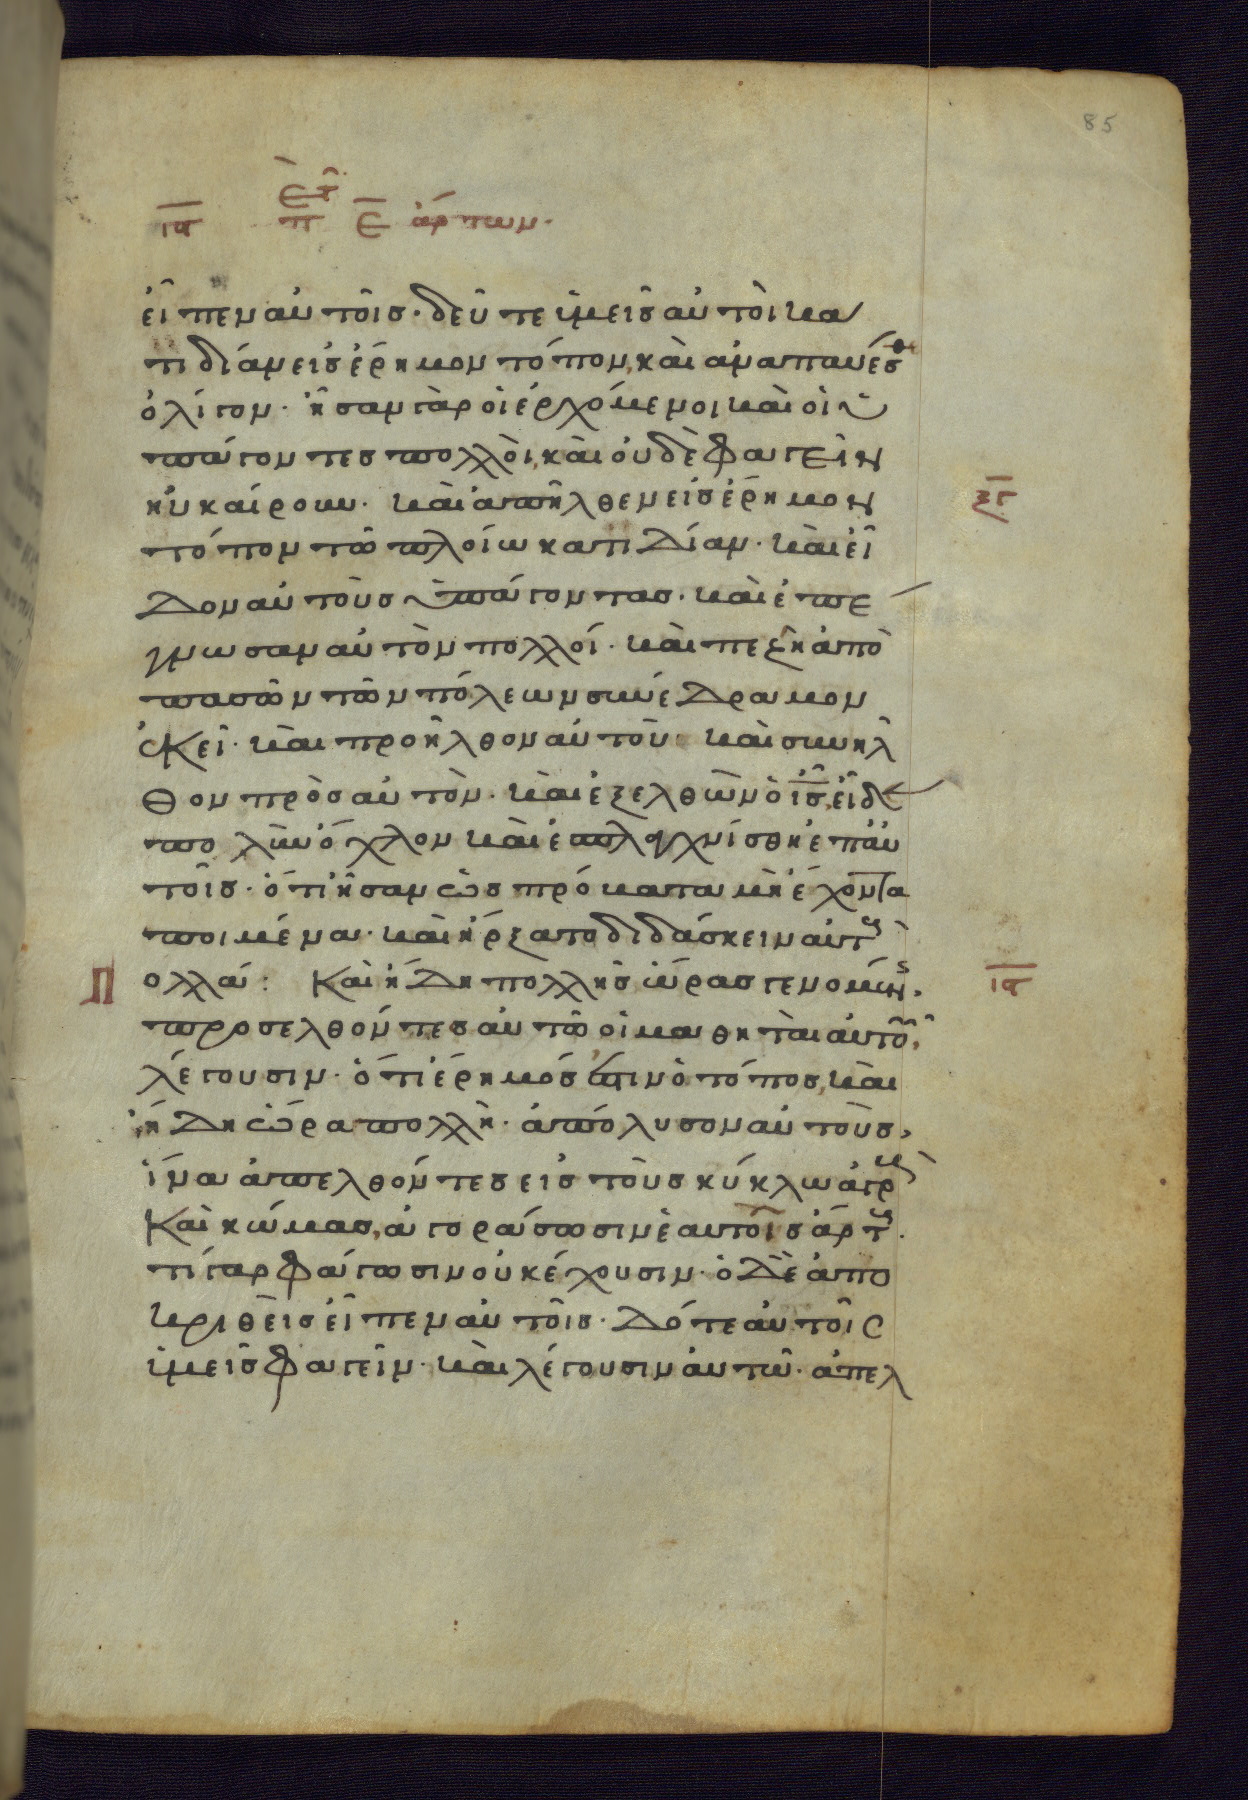 85
ιϛ π ε̅ ἄρτων·
εἶπεν αὐτοῖς· δεῦτε ὑμεῖς αὐτοὶ κα
τιδίαν εἰς ἔρημον τόπον, καὶ ἀναπαύεσθ
ὀλίγον· ἦσαν γὰρ οἱ ἐρχόμενοι καὶ οἱ ὑ
πάγοντες πολλοὶ, καὶ οὐδὲ φαγεῖν
ηὐκαίρουν· καὶ ἀπῆλθεν εἰς ἔρημον
τόπον τῶ πλοίω κατιδίαν· καὶ εἶ
δον αὐτοὺς ὑπάγοντας· καὶ ἐπέ
γνωσαν αὐτὸν πολλοί· καὶ πεζῆ ἀπὸ
πασῶν τῶν πόλεων συνέδραμον
ἐκεῖ· καὶ προῆλθον αὐτοῦ· καὶ συνῆλ
θον πρὸς αὐτὸν· καὶ ἐξελθὼν ὁ ι̅ς̅ εἶδε
πολὺν ὄχλον καὶ ἐσπλαγχνίσθη ἐπ αὐ
τοῖς· ὅτι ἦσαν ὡς πρόβατα μὴ ἔχοντα
ποιμένα· καὶ ἤρξατο διδάσκειν αὐτοὺς
πολλά: Καὶ ἤδη πολλῆς ὥρας γενομένης,
προσελθόντες αὐτῶ οἱ μαθηταὶ αὐτοῦ,
λέγουσιν· ὅτι ἔρημός ἐστιν ὁ τόπος, καὶ
ἤδη ὥρα πολλὴ· ἀπόλυσον αὐτοὺς,
ἵνα ἀπελθόντες εἰς τοὺς κύκλω ἀγροὺς
καὶ κώμας, ἀγοράσωσιν ἑαυτοῖς ἄρτους·
τί γὰρ φάγωσιν οὐκ ἔχουσιν· ὁ δὲ ἀπο
κριθεὶς εἶπεν αὐτοῖς· δότε αὐτοῖς
ὑμεῖς φαγεῖν· καὶ λέγουσιν αὐτῶ· ἀπελ